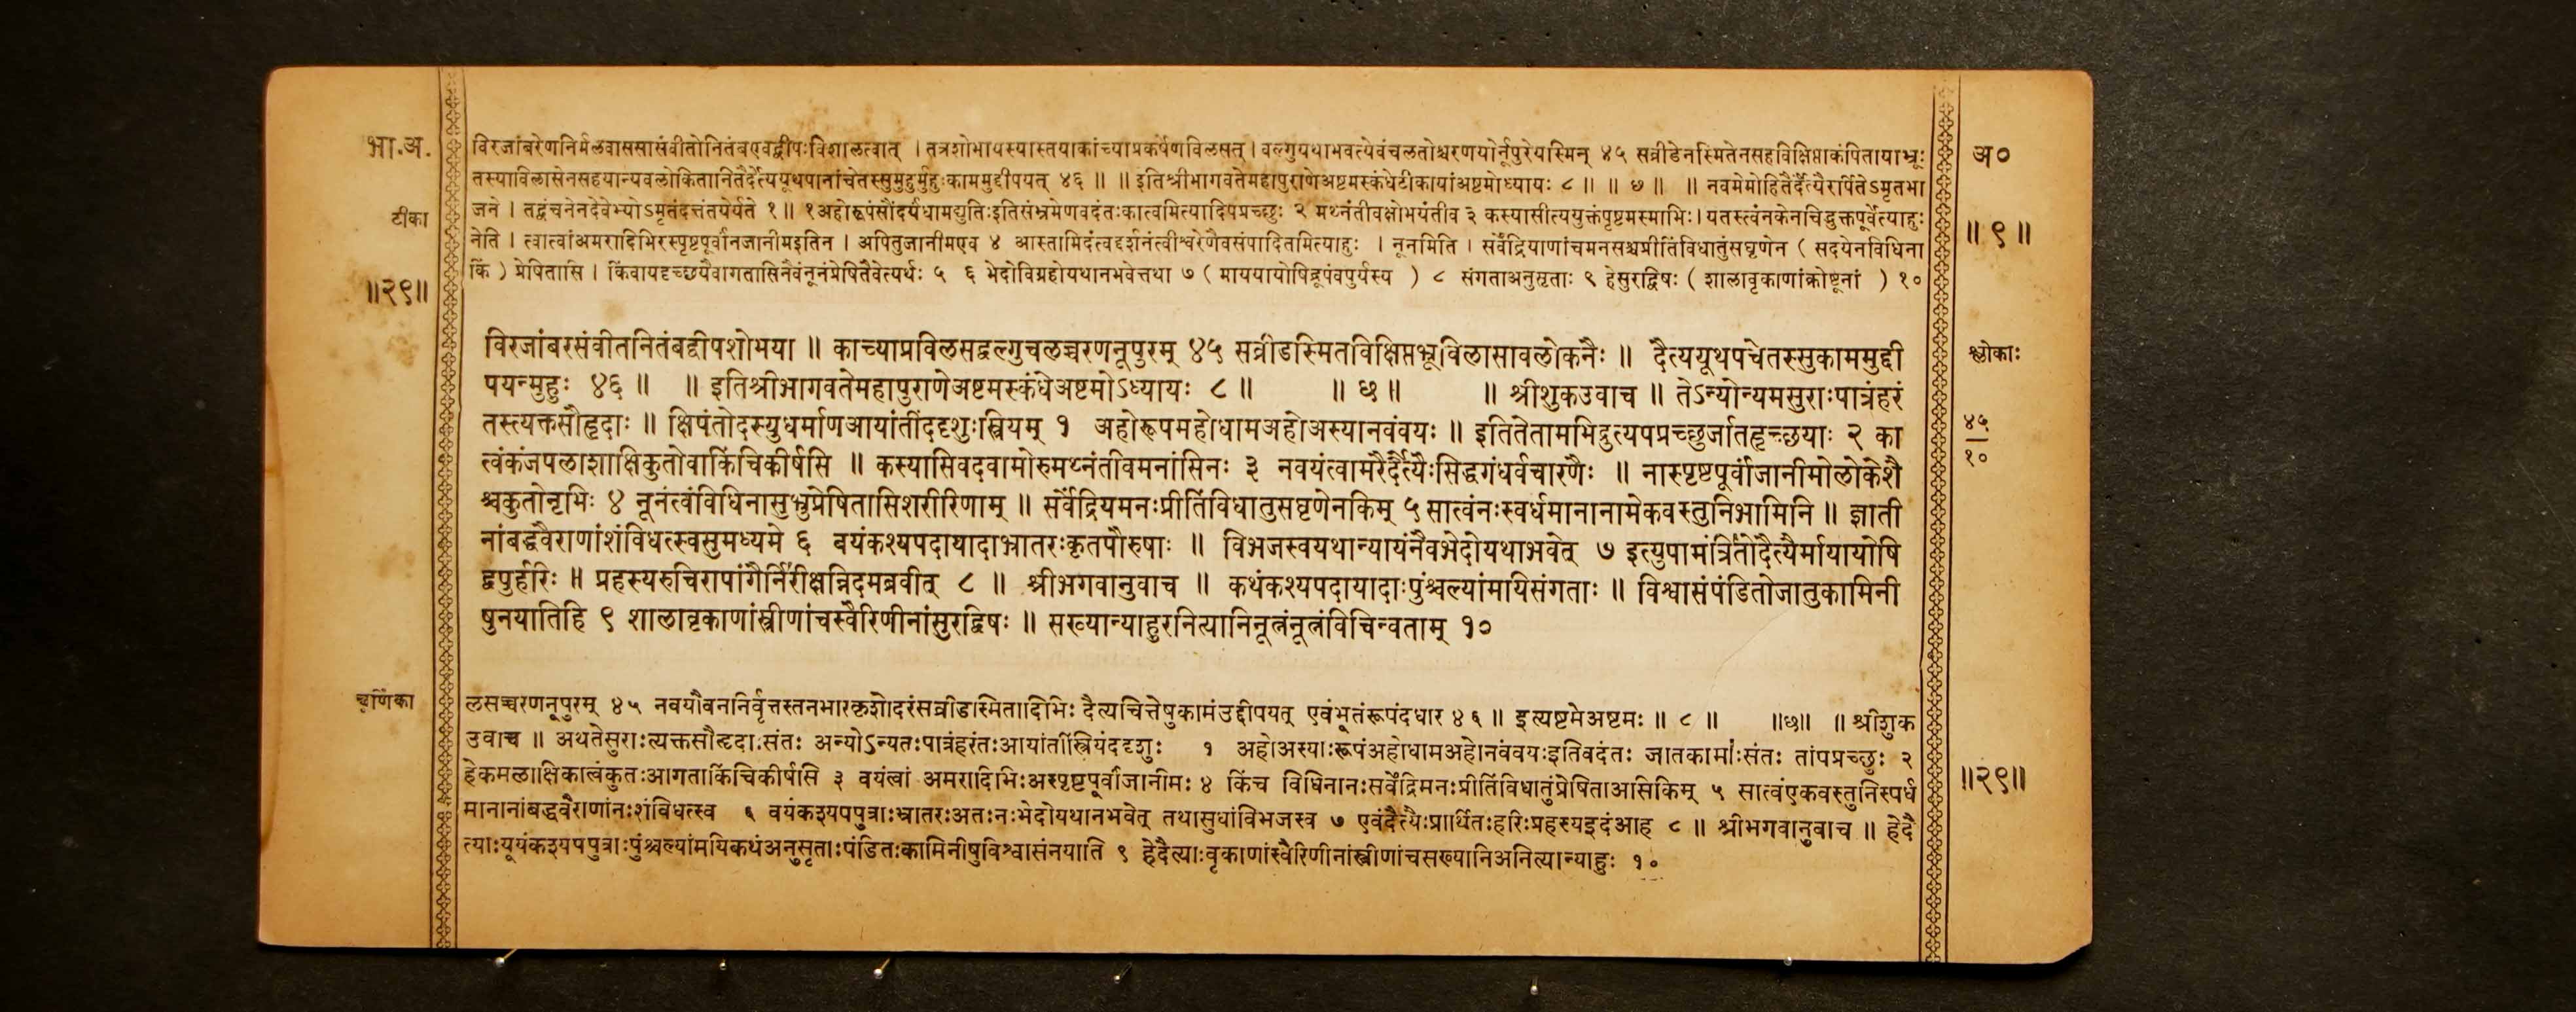 भा.अ.
टीका
॥२९॥
विरजांबरेणनिर्मलवाससासंवीतोनितंबएवद्वीपःविशालत्वात् । तत्रशोभायस्यास्तयाकांच्याप्रकर्षेणविलसत् । वल्गुयथाभवत्येवंचलतोश्चरणयोर्नूपुरेयस्मिन् ४५ सव्रीडेनस्मितेनसहविक्षिप्ताकंपितायाभ्रूः
तस्याविलासेनसहयान्यवलोकितानितैर्दैत्ययूथपानांचेतस्सुमुहुर्मुहुःकाममुद्दीपयत् ४६ ॥ ॥ इतिश्रीभागवतेमहापुराणेअष्टमस्कंधेटीकायांअष्टमोध्यायः ८ ॥ ॥ ७ ॥ ॥ नवमेमोहितैर्दैत्यैरर्पितेऽमृतभा
जने । तद्वंचनेनदेवेभ्योऽमृतंदत्तंतयेर्यते १ ॥ १अहोरूपंसौंदर्यंधामद्युतिःइतिसंभ्रमेणवदंतःकात्वमित्यादिपप्रच्छुः २ मथ्नंतीवक्षोभयंतीव ३ कस्यासीत्ययुक्तंपृष्टमस्माभिः। यतस्त्वंनकेनचिद्भुक्तपूर्वेत्याहुः
नेति । त्वात्वांअमरादिभिरस्पृष्टपूर्वांनजानीमइतिन । अपितुजानीमएव ४ आस्तामिदंत्वद्दर्शनंत्वीश्वरेणैवसंपादितमित्याहुः । नूनमिति । सर्वेंद्रियाणांचमनसश्चप्रीतिंविधातुंसघृणेन ( सदयेनविधिना
किं ) प्रेषितासि । किंवायदृच्छयैवागतासिनैवंनूनंप्रेषितैवेत्यर्थः ५ ६ भेदोविग्रहोयथानभवेत्तथा ७ ( माययायोषिद्रूपंवपुर्यस्य ) ८ संगताअनुसृताः ९ हेसुरद्विषः ( शालावृकाणांक्रोष्टूनां ) १०
अ०
॥ ९ ॥
विरजांबरसंवीतनितंबद्वीपशोभया ॥ कांच्याप्रविलसद्वल्गुचलच्चरणनूपुरम् ४५ सव्रीडस्मितविक्षिप्तभ्रूविलासावलोकनैः ॥ दैत्ययूथपचेतस्सुकाममुद्दी
पयन्मुहुः ४६ ॥ ॥ इतिश्रीभागवतेमहापुराणेअष्टमस्कंधेअष्टमोऽध्यायः ८ ॥ ॥ छ ॥ ॥ श्रीशुकउवाच ॥ तेऽन्योन्यमसुराःपात्रंहरं
तस्त्यक्तसौहृदाः ॥ क्षिपंतोदस्युधर्माणआयांतींददृशुःस्त्रियम् १ अहोरूपमहोधामअहोअस्यानवंवयः ॥ इतितेतामभिद्रुत्यपप्रच्छुर्जातहृच्छयाः २ का
त्वंकंजपलाशाक्षिकुतोवाकिंचिकीर्षसि ॥ कस्यासिवदवामोरुमथ्नंतीवमनांसिनः ३ नवयंत्वामरैर्दैत्यैःसिद्धगंधर्वचारणैः ॥ नास्पृष्टपूर्वांजानीमोलोकेशै
श्चकुतोनृभिः ४ नूनंत्वंविधिनासुभ्रुप्रेषितासिशरीरिणाम् ॥ सर्वेंद्रियमनःप्रीतिंविधातुसघृणेनकिम् ५ सात्वंनःस्वर्धमानानामेकवस्तुनिभामिनि ॥ ज्ञाती
नांबद्धवैराणांशंविधत्स्वसुमध्यमे ६ वयंकश्यपदायादाभ्रातरःकृतपौरुषाः ॥ विभजस्वयथान्यायंनैवभेदोयथाभवेत् ७ इत्युपामंत्रितोदैत्यैर्मायायोषि
द्वपुर्हरिः ॥ प्रहस्यरुचिरापांगैर्निरीक्षन्निदमब्रवीत् ८ ॥ श्रीभगवानुवाच ॥ कथंकश्यपदायादाःपुंश्चल्यांमयिसंगताः ॥ विश्वासंपंडितोजातुकामिनी
षुनयातिहि ९ शालावृकाणांस्त्रीणांचस्वैरिणीनांसुरद्विषः ॥ सख्यान्याहुरनित्यानिनूत्नंनूत्नंविचिन्वताम् १०
श्लोकाः
४५
१०
चूर्णिका
लसच्चरणनूपुरम् ४५ नवयौवननिर्वृत्तस्तनभारकृशोदरंसव्रीडास्मितादिभिः दैत्यचित्तेषुकामंउद्दीपयत् एवंभूतंरूपंदधार ४६ ॥ इत्यष्टमेअष्टमः ॥ ८ ॥ ॥छ॥ ॥ श्रीशुक
उवाच ॥ अथतेसुराःत्यक्तसौहृदाःसंतः अन्योऽन्यतःपात्रंहरंतःआयांतींस्त्रियंददृशुः १ अहोअस्याःरूपंअहोधामअहोनवंवयःइतिवदंतः जातकामाःसंतः तांपप्रच्छुः २
हेकमलाक्षिकात्वंकुतःआगताकिंचिकीर्षसि ३ वयंत्वां अमरादिभिःअस्पृष्टपूर्वांजानीमः ४ किंच विधिनानःसर्वेंद्रिमनःप्रीतिंविधातुंप्रेषिताआसिकिम् ५ सात्वंएकवस्तुनिस्पर्ध
मानानांबद्धवैराणांनःशंविधत्स्व ६ वयंकश्यपपुत्राःभ्रातरःअतःनःभेदोयथानभवेत् तथासुधांविभजस्व ७ एवंदैत्यैःप्रार्थितःहरिःप्रहस्यइदंआह ८ ॥ श्रीभगवानुवाच ॥ हेदै
त्याःयूयंकश्यपपुत्राःपुंश्चल्यांमयिकथंअनुसृताःपंडितःकामिनीषुविश्वासंनयाति ९ हेदैत्याःवृकाणांस्वैरिणीनांस्त्रीणांचसख्यानिअनित्यान्याहुः १०
॥२९॥